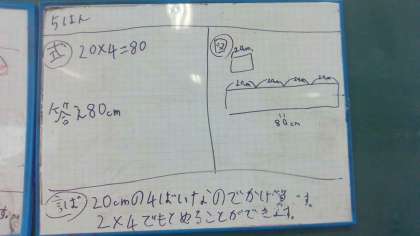 5はん
式 20×4=80
答え80cm
図
20cm
20cm 20cm 20cm 20cm
80cm
ことば 20cmの4ばいなのでかけ算です。
2×4でもとめることができます。